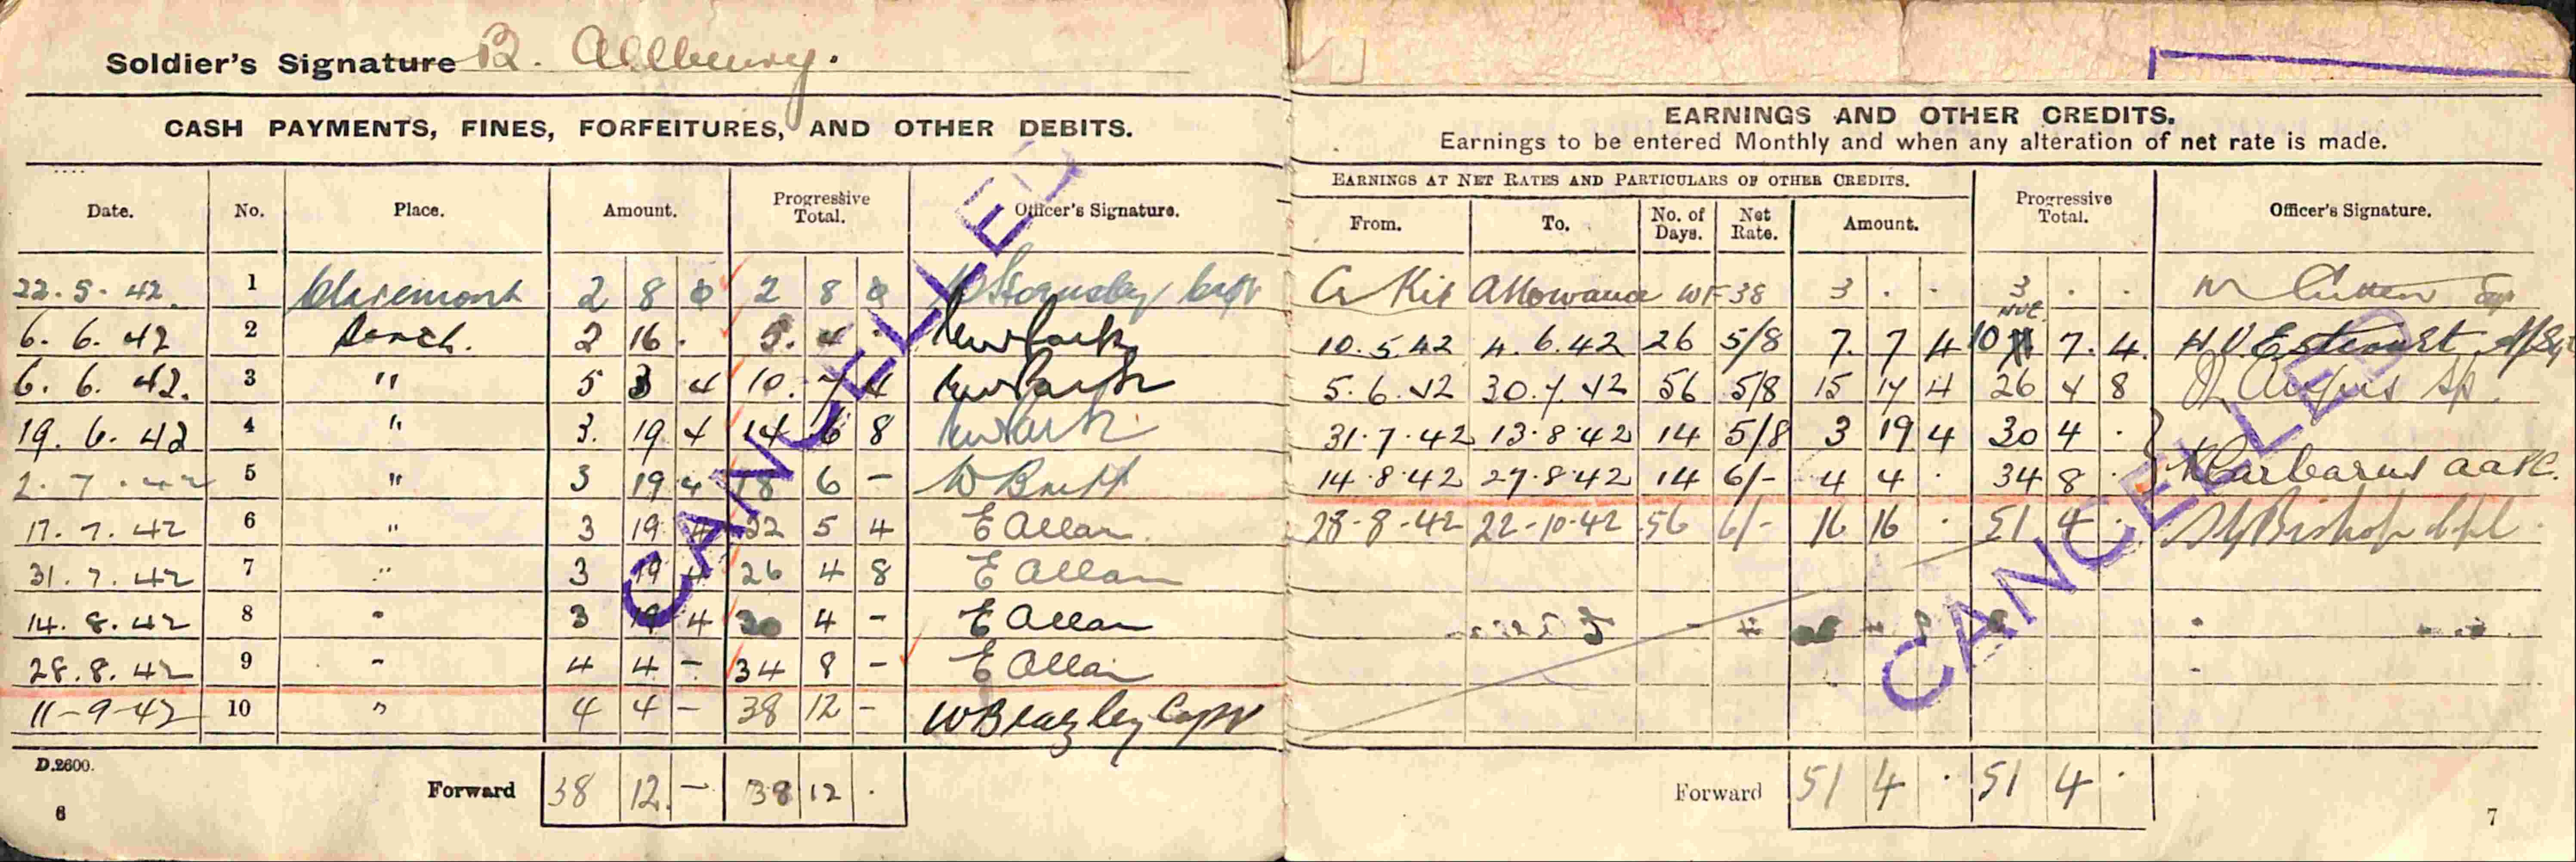 Soldier's Signature B. Allbury.
CASH PAYMENTS, FINES, FORFEITURES, AND OTHER DEBITS.
Date. No. Place. Amount. Progressive Total. Officer's Signature.
22.5.42. 1 Claremont 2 8 0 2 8 0 Capt
6.6.42 2 Ranch. 2 16 . 5. 4 .
6.6.42. 3 " 5 3 4 10. 7 4
19.6.42 4 " 3. 19 4 14 6 8
2.7.42 5 " 3 19 4 18 6 –
17.7.42 6 " 3 19 4 22 5 4 E Allan.
31.7.42 7 " 3 19 4 26 4 8 E Allan
14.8.42 8 " 3 19 4 30 4 – E Allan
28.8.42 9 " 4 4 – 34 8 – E Allan
11-9-42 10 " 4 4 – 38 12 – W Beazley Capt
D.2600.
Forward 38 12. – 38 12 .
6
CANCELLED
EARNINGS AND OTHER CREDITS.
Earnings to be entered Monthly and when any alteration of net rate is made.
EARNINGS AT NET RATES AND PARTICULARS OF OTHER CREDITS.
From. To. No. of Days. Net Rate. Amount. Progressive Total. Officer's Signature.
Cr Kit Allowance WF 38 3 . . 3 . .
10.5.42 4.6.42 26 5/8 7. 7 4 10 7. 4.
5.6.42 30.7.42 56 5/8 15 17 4 26 4 8
31.7.42 13.8.42 14 5/8 3 19 4 30 4 .
14.8.42 27.8.42 14 6/- 4 4 . 34 8 . AAPC.
28-8-42 22-10-42 56 6/- 16 16 . 51 4 . Bishop Cpl
Forward 51 4 . 51 4 .
7
CANCELLED